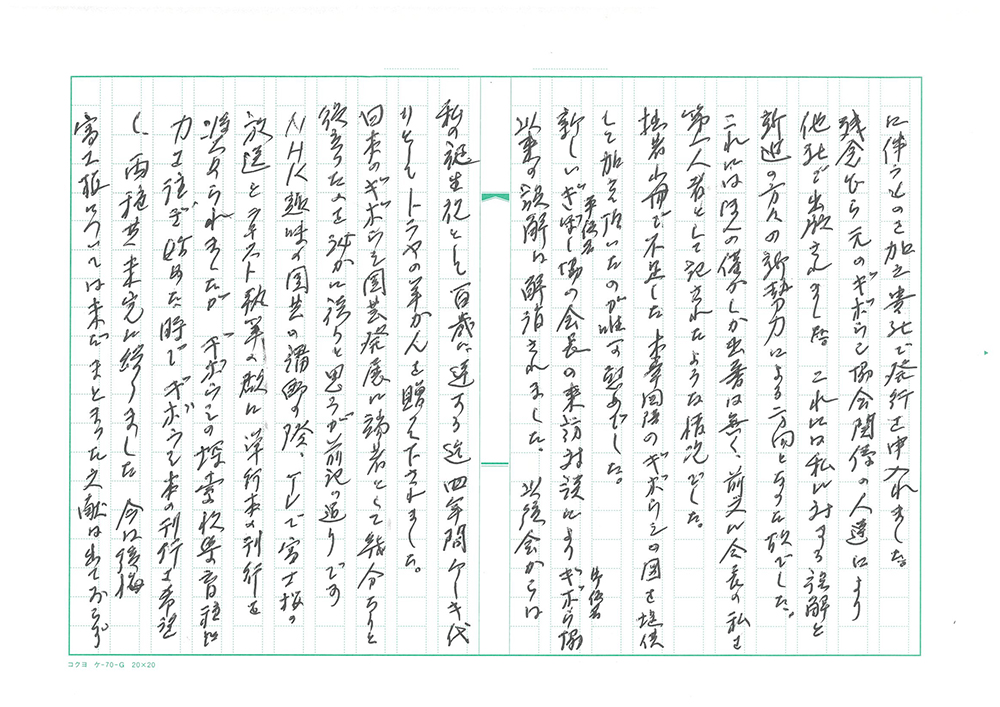 に伴うとのを加え貴社で発行を申入れました。
残念乍ら元のギボウシ協会関係の人達により
他社で出版されました。これには私に対する誤解と
新進の方々の新勢力による二方向となった故でした。
これには法人の僅かしか出番は無く、前文に会長の私を
第一人者として記されたような情況でした。
拙者小冊で不足した本章回陸のギボウシの図を提供
して加えて頂いたのが唯一の慰めでした。
新しいぎぼし協の会長の来訪対談によりギボウシ協
以来の誤解は解消されました。以後会からは
私の誕生祝として百歳に達する迄四年間ケーキ代
りとしてトラヤの羊かんを贈って下されました。
日本のギボウシ園芸発展に端者として幾分なりと
役立ったのを密かに誇りと思うが前記の通りです
NHK趣味の園芸の講師の際、TVで富士桜の
放送とテキスト執筆の際に単行本の刊行を
進められましたがギボウシの探索収集育種に
力を注ぎ始めた時でギボウシ本の刊行を希望
し、両種共未完に終りました 今は後悔
富士桜については未だまとまった文献は出ておらず
コクヨ ケ-70-G 20×20